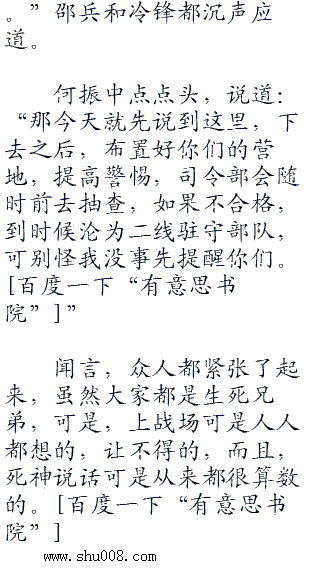 。”邵兵和冷锋都沉声应
道。
何振中点点头，说道：
“那今天就先说到这里，下
去之后，布置好你们的营
地，提高警惕，司令部会随
时前去抽查，如果不合格，
到时候沦为二线驻守部队，
可别怪我没事先提醒你们。
[百度一下“有意思书
院”]”
闻言，众人都紧张了起
来，虽然大家都是生死兄
弟，可是，上战场可是人人
都想的，让不得的，而且，
死神说话可是从来都很算数
的。[百度一下“有意思书
院”]
www.shu008.com